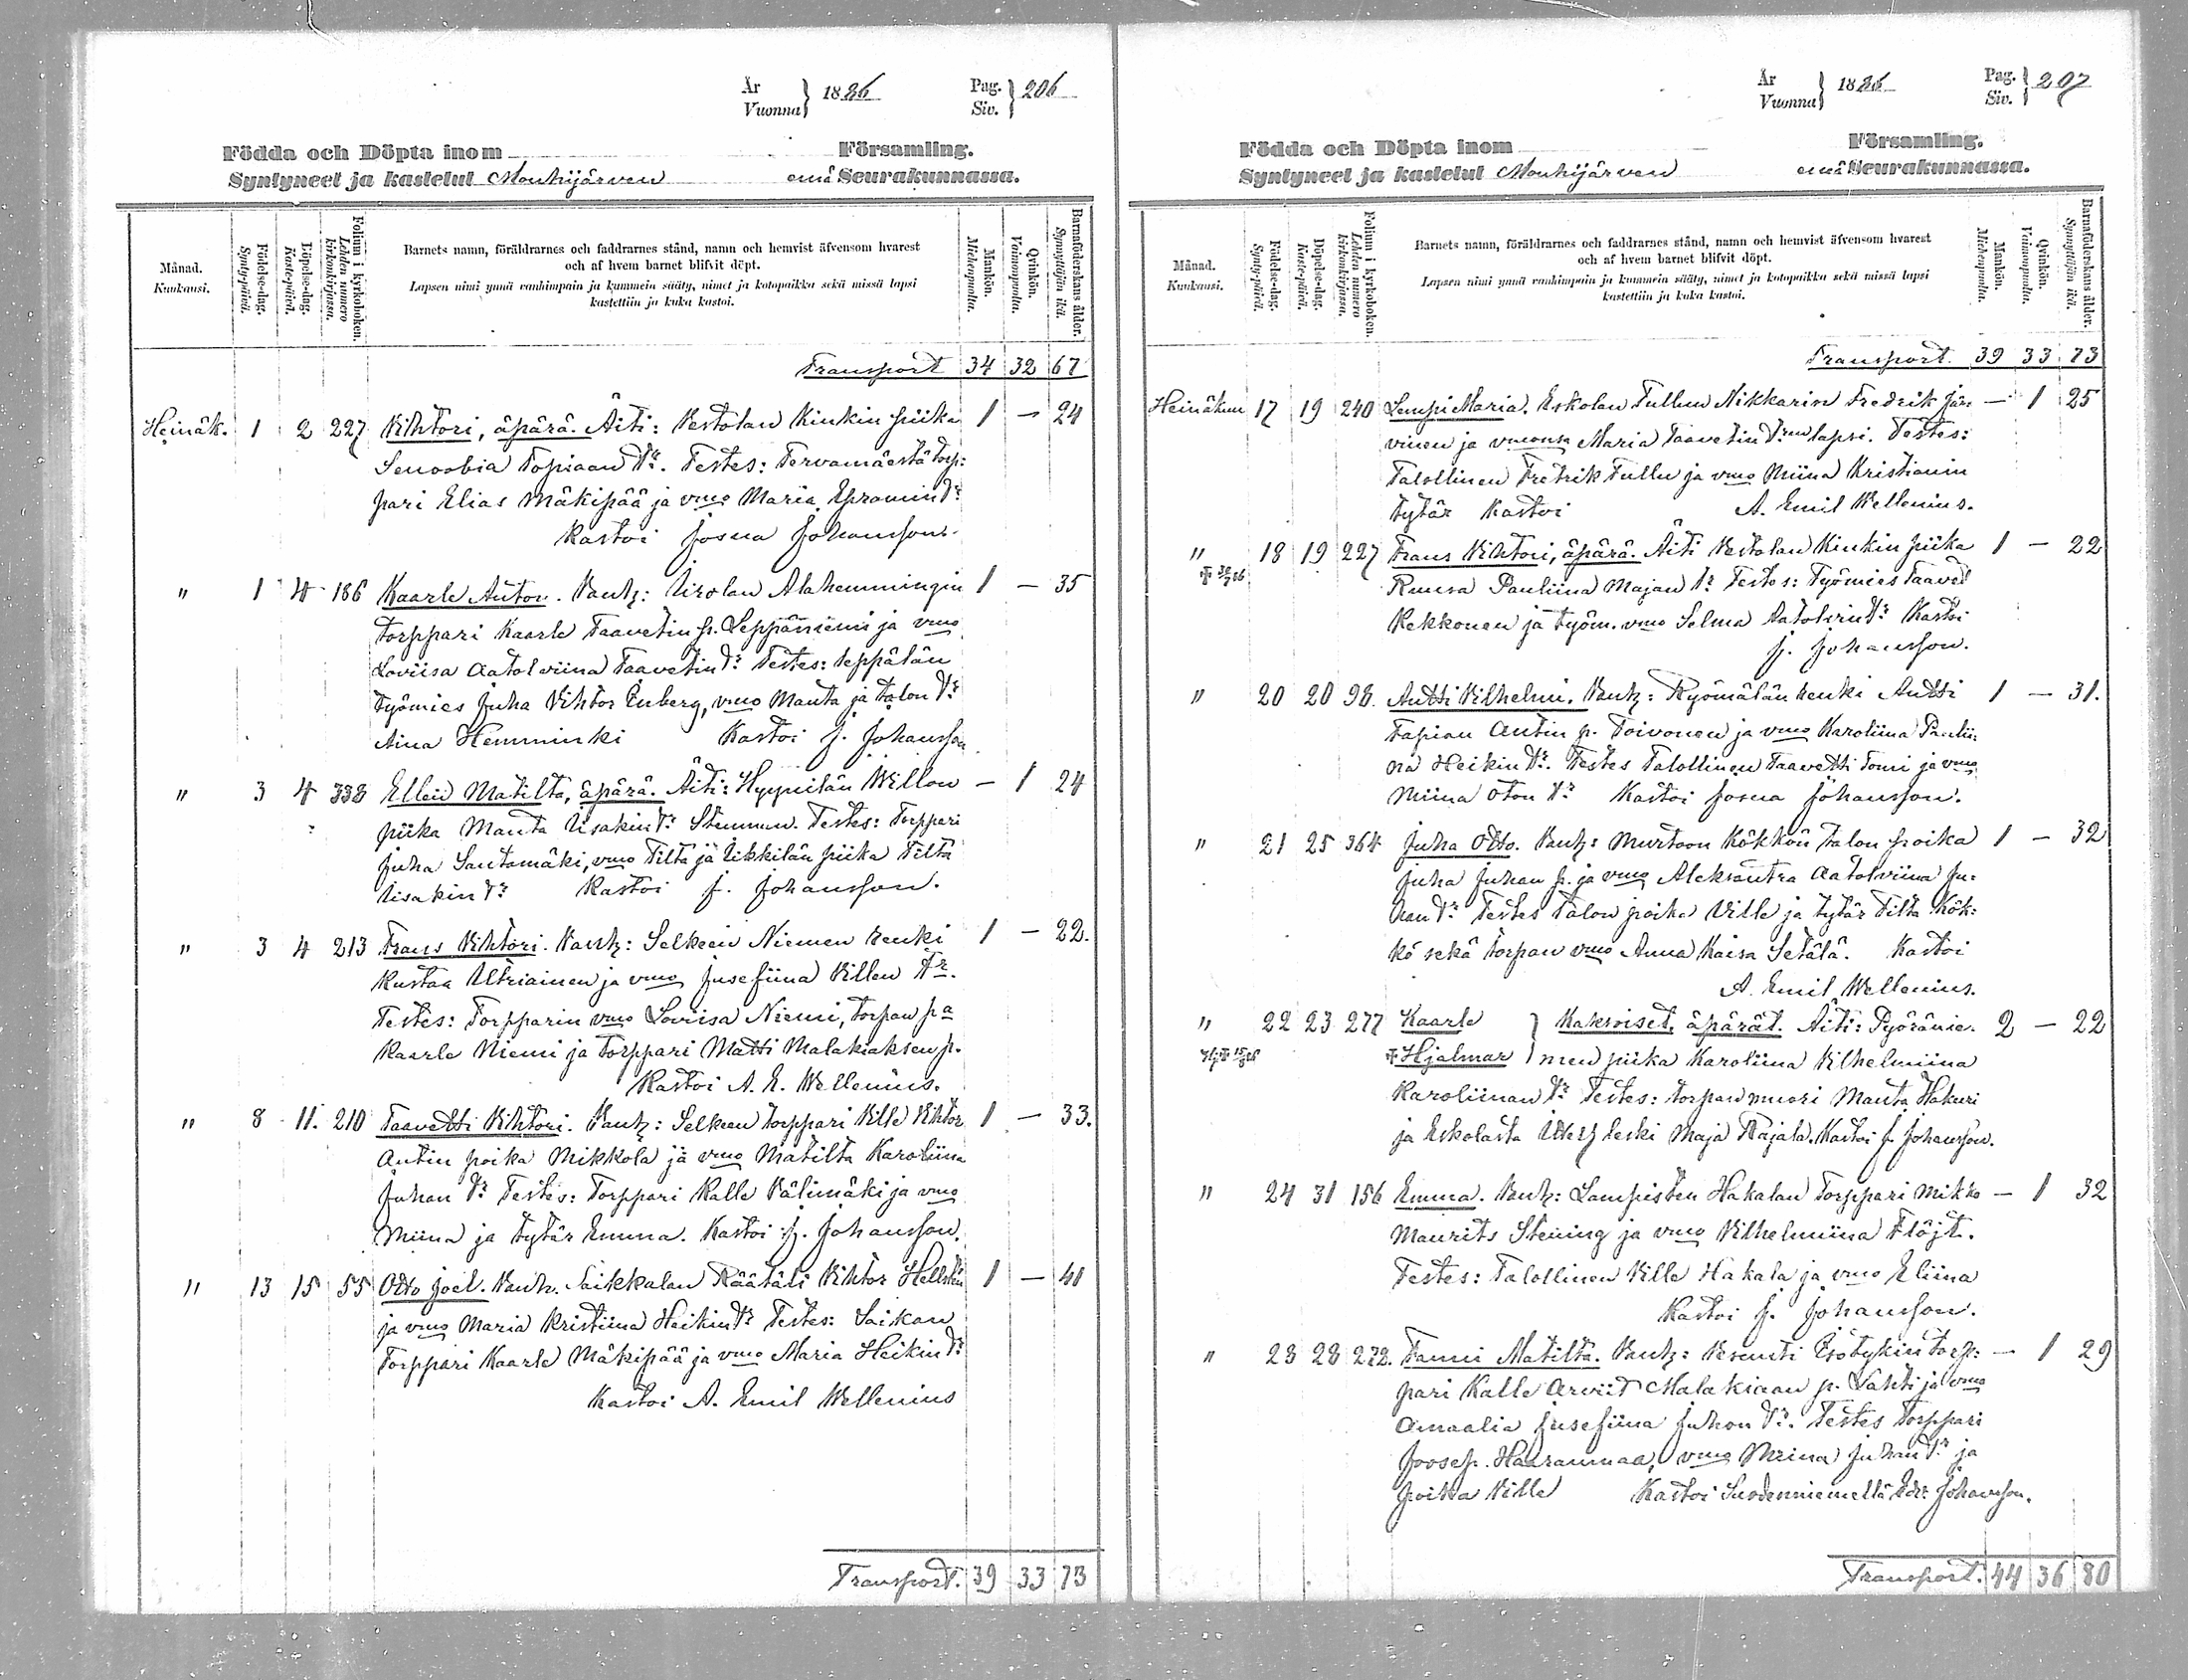 År
Vuonna } 1886
Pag.
Siv. } 206
Födda och Döpta inom Församling.
Syntyneet ja kastetut Mouhijärven emä Seurakunnassa.
Månad.
Kuukausi.
Födelse-dag.
Synty-päivä.
Döpelse-dag.
Kaste-päivä.
Folium i kyrkoboken.
Lehden numero kirkonkirjassa.
Barnets namn, föräldrarnes och faddrarnes stånd, namn och hemvist äfvensom hvarest
och af hvem barnet blifvit döpt.
Lapsen nimi ynnä vanhimpain ja kummein sääty, nimet ja kotopaikka sekä missä lapsi
kastettiin ja kuka kastoi.
Mankön.
Miehenpuolta.
Qvinkön.
Vaimonpuolta.
Barnaföderskans ålder.
Synnyttäjän ikä.
Transport 34 32 67
Heinäk. 1 2 227 Vihtori, äpärä. Äiti: Vestolan Kinkin piika 1 — 24
Senoobia Topiaan tr. Testes: Tervamäestä torp:
pari Elias Mäkipää ja vmo Maria Epramin tr
Kastoi Josua Johansson.
" 1 4 186 Kaarle Anton. Vanh: Urolan Alahemmingin 1 — 35
torppari Kaarle Taavetin p. Leppäniemi ja vmo
Loviisa Aatolviina Taavetin tr Testes: Seppälän
työmies Juha Vihtor Enberg, vmo Manta ja talon tr
Aina Hemminki Kastoi J. Johansson
" 3 4 338 Ellen Matilta, äpärä. Äiti: Hyynilän Willon — 1 24
piika Manta Iisakin tr Stenman. Testes: Torppari
Juha Santamäki, vmo Tilta ja Uikkilän piika Tilta
Iisakin tr Kastoi J. Johansson.
" 3 4 213 Frans Vihtori. Vanh: Selkeen Niemen renki 1 — 22.
Kustaa Utriainen ja vmo Jusefiina Villen tr.
Testes: Torpparin vmo Loviisa Niemi, torpan pa
Kaarle Niemi ja torppari Matti Malakiaksen p.
Kastoi A. E. Wellenius.
" 8 11. 210 Taavetti Vihtori. Vanh: Selkeen torppari Ville Vihtor 1 — 33.
Antin poika Mikkola ja vmo Matilta Karoliina
Juhan tr Testes: Torppari Kalle Välimäki ja vmo
Miina ja tytär Emma. Kastoi J. Johansson.
" 13 15 55 Otto Joel. Vanh. Saikkalan Räätäli Vihtor Hellstén 1 — 41
ja vmo Maria Kristiina Heikin tr Testes: Saikan
Torppari Kaarle Mäkipää ja vmo Maria Heikin tr
Kastoi A. Emil Wellenius
Transport. 39 33 73
År
Vuonna } 1886
Pag.
Siv. } 207
Födda och Döpta inom Församling.
Syntyneet ja kastetut Mouhijärven emä Seurakunnassa.
Månad.
Kuukausi.
Födelse-dag.
Synty-päivä.
Döpelse-dag.
Kaste-päivä.
Folium i kyrkoboken.
Lehden numero kirkonkirjassa.
Barnets namn, föräldrarnes och faddrarnes stånd, namn och hemvist äfvensom hvarest
och af hvem barnet blifvit döpt.
Lapsen nimi ynnä vanhimpain ja kummein sääty, nimet ja kotopaikka sekä missä lapsi
kastettiin ja kuka kastoi.
Mankön.
Miehenpuolta.
Qvinkön.
Vaimonpuolta.
Barnaföderskans ålder.
Synnyttäjän ikä.
Transport. 39 33 73
Heinäkuu 17 19 240 Lempi Maria. Eskolan Tullun Nikkarin Fredrik Jär: — 1 25
vinen ja vmonsa Maria Taavetin tren lapsi. Testes:
Talollinen Fretrik Tullu ja vmo Miina Kristianin
tytär Kastoi A. Emil Wellenius.
" 18 19 227 Frans Vihtori, äpärä. Äiti Vestolan Kinkin piika 1 — 22
Ruusa Pauliina Majan tr Testes: Työmies Taavet
Kekkonen ja työm. vmo Selma Aatolvin tr Kastoi
J. Johansson.
" 20 20 98. Antti Vilhelmi. Vanh: Ryömälän renki Antti 1 — 31.
Tapian Antin p. Toivonen ja vmo Karoliina Paulii:
na Heikin tr. Testes Talollinen Taavetti Tomi ja vmo
Miina Oton tr Kastoi Josua Johansson.
" 21 25 364 Juha Otto. Vanh: Murtoon Kökkön talon poika 1 — 32
Juha Juhan p. ja vmo Aleksantra Aatolviina Ju:
han tr Testes Talon poika Ville ja tytär Tilta Kök:
kö sekä torpan vmo Anna Kaisa Setälä. Kastoi
A. Emil Wellenius.
" 22 23 277 Kaarle } Kaksoiset, äpärät. Äiti: Pyöränie: 2 — 22
Hjalmar } men piika Karoliina Vilhelmiina
Karoliinan tr Testes: torpanmuori Manta Hakuri
ja Eskolasta leski Maja Rajala. Kastoi J. Johansson.
" 24 31 156 Emma. Vanh: Lampisten Hakalan Torppari Mikko — 1 32
Maurits Stening ja vmo Vilhelmiina Flöjt.
Testes: Talollinen Ville Hakala ja vmo Eliina
Kastoi J. Johansson.
" 28 28 272. Fanni Matilta. Vanh: Vesunti Isotykin torp: — 1 29
pari Kalle Arviit Malakiaan p. Lahti ja vmo
Amaalia Jusefiina Juhon tr. Testes Torppari
Joosep. Haaranmaa, vmo Miina Juhan tr ja
poika Ville Kastoi Suodenniemellä Edv: Johansson.
Transport. 44 36 80